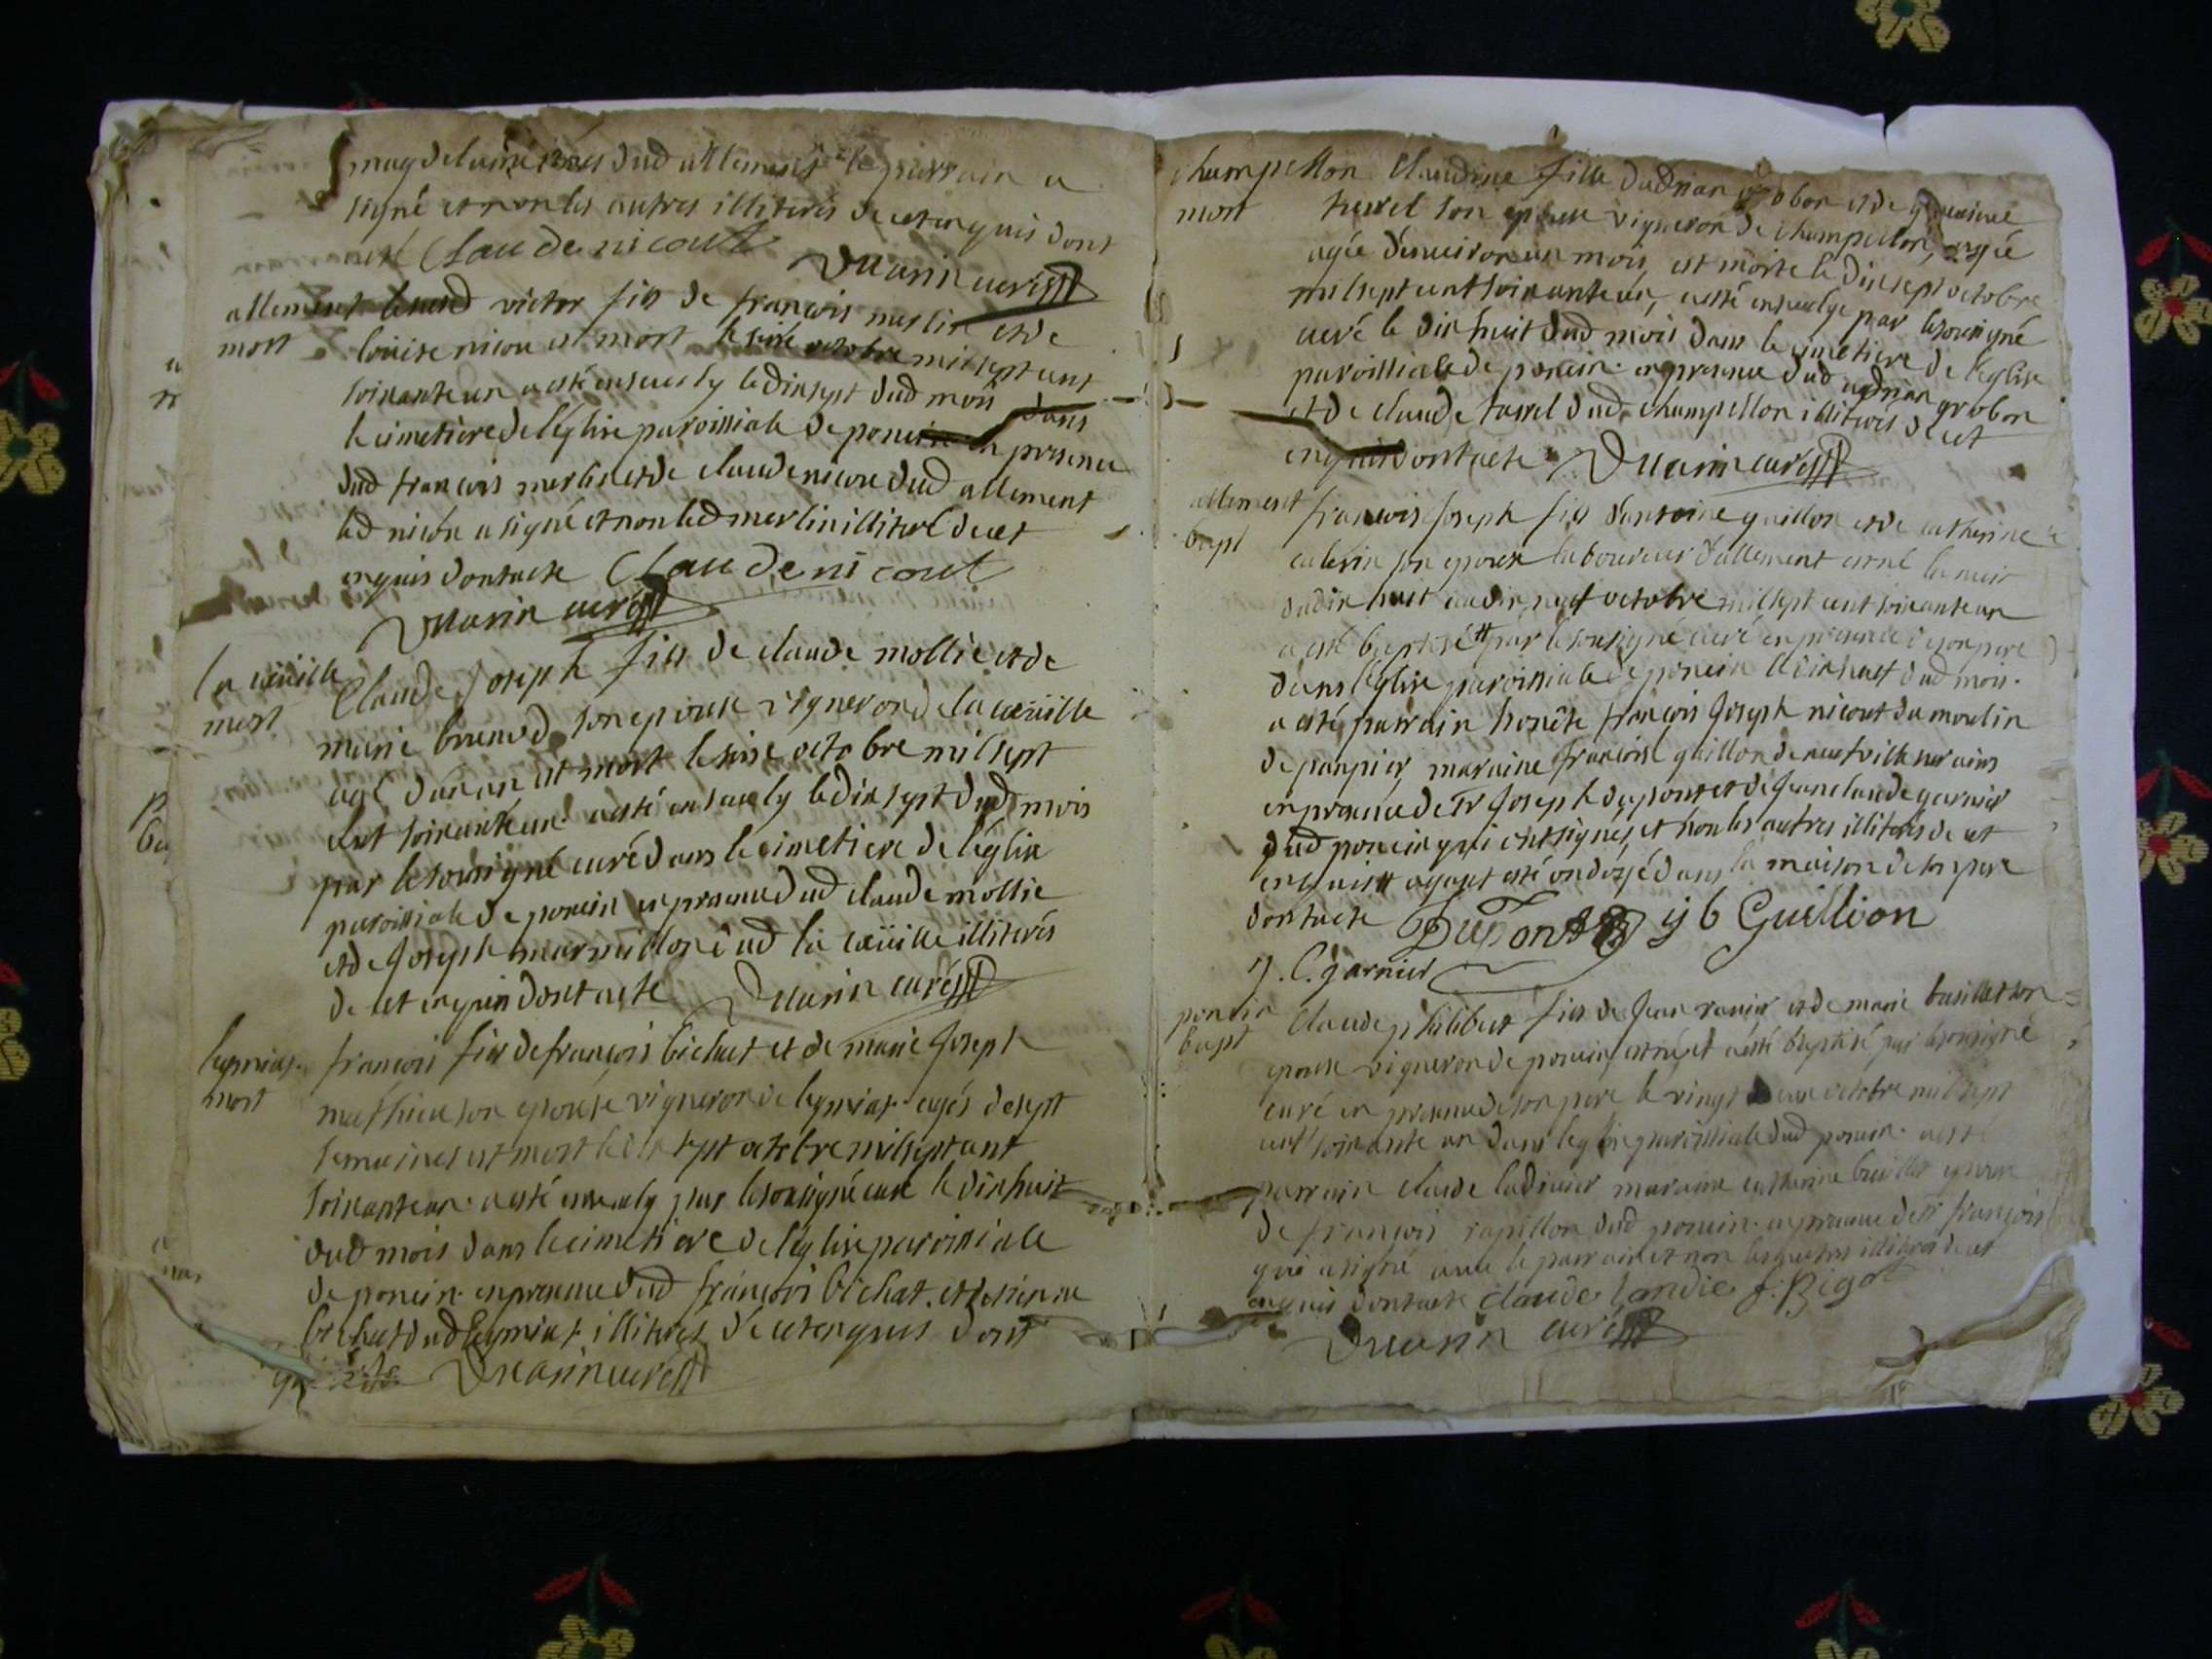 magdelaine dud allement le parrain a
signé et non les autres illiterés de cet enquis dont
acte Claude nicout Duarin curé
allement leonard victor fils de francois merlin et de
mort louise nicou est mort le size octobre mil sept cent
soixante un a esté ensevely le dix sept dud mois dans
le cimetiere de l'église paroissiale de poncin en presence
dud francois merlin et de claude nicou dud allement
led nicou a signé et non led merlin illiteré de cet
enquis dont acte Claude nicout
Duarin curé
la cüeille Claude Joseph fils de claude mollie et de
mort marie brunod son epouse vigneron de la cüeille
agé d'un an est mort le size octobre mil sept
cent soixante un a esté ensevely le dix sept dud mois
par le sousigné curé dans le cimetiere de l'église
paroissiale de poncin en presence dud claude mollie
et de Joseph marmillon dud la cüeille illiterés
de cet enquis dont acte Duarin curé
leymiat francois fils de francois bichat et de marie Joseph
mort mathieu son epouse vigneron de leymiat agés de sept
semaines est mort le dix sept octobre mil sept cent
soixante un a esté ensevely par le sousigné curé le dix huit
dud mois dans le cimetiere de l'église paroissiale
de poncin en presence dud francois bichat et
bichat dud leymiat illiterés de cet enquis dont
acte Duarin curé
champellon Claudine fille d'adrian grobon et de
mort tarrel son epouse vigneron de champellon, agée
agée d'environ un mois, est morte le dix sept octobre
mil sept cent soixante un, a esté ensevelye par le sousigné
curé le dix huit dud mois dans le cimetiere de l'église
paroissiale de poncin en presence dud adrian grobon
et de claude tarrel dud champellon illiterés de cet
enquis dont acte Duarin curé
allement francois Joseph fils d'antoine guillon et de catherine
bapt son epouse laboureur d'allement est né la nuit
du dix huit au dix neuf octobre mil sept cent soixante un
a esté baptisé # par le sousigné curé en presence de son pere
dans l'église paroissiale de poncin le dix huit dud mois
a esté parrain honéte francois Joseph nicout du moulin
de pampier, maraine francoise guillon de neufville sur ains
en presence de Sr Joseph dupont et de Jean claude garnier
dud poncin qui ont signés, et non les autres illiterés de cet
enquis # ayant esté ondoyé dans la maison de son pere
dont acte Dupont Guillion
J. C. garnier
poncin Claude philibert fils de Jean ravier et de marie busillet son
bapt epouse vigneron de poncin, est né et a esté baptisé par le sousigné
curé en presence de son pere le vingt octobre mil sept
cent soixante un dans l'église paroissiale dud poncin a esté
parrain claude maraine catherine epouse
de francois rapillon dud poncin en presence de Sr francois
qui a signé avec le parrain et non les autres illiterés de cet
enquis dont acte claude landie f. Bigot
Duarin curé